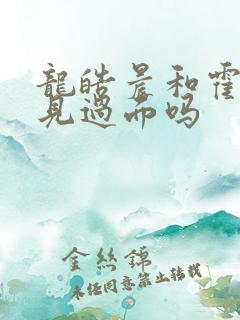 龍皓晨和霍
見過面吗
金丝錦
未经同意禁止转载